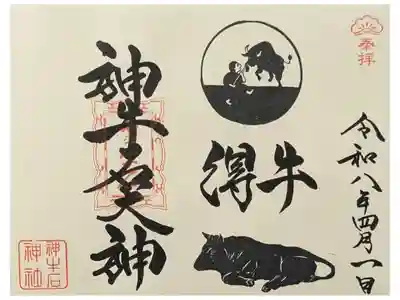 奉拝
令和八年四月一日
得牛
神牛石大神
神牛石
神社